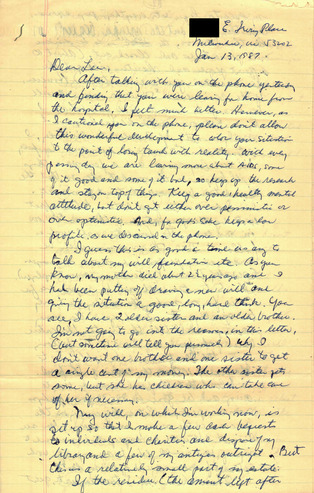 E. Irving Place
Milwaukee, WI 53202
Jan 13, 1987.
Dear Lee,
After talking with you on the phone yesterday
and finding that you were leaving for home from
the hospital, I felt much better. However, as
I cautioned you on the phone, please don't allow
this wonderful development to color your situation
to the point of losing touch with reality. With every
passing day we are learning more about AIDS, some
of it good and some of it bad, so keep up the research
and stay on top of things. Keep a good healthy mental
attitude, but don't get either over pessimistic or
over optimistic. And, for God's sake keep a low
profile, as we discussed on the phone.
I guess this is as good a time as any to
talk about my will, foundation etc. As you
know, my mother died about 2½ years ago and I
had been putting off drawing a new will and
giving the situation a good, long, hard think. You
see, I have 2 older sisters and an older brother.
I'm not going to go into the reasons, in this letter,
(but sometime will tell you personally) why I
don't want one brother and one sister to get
a single cent of my money. The other sister gets
some, but she has children who can take care
of her if necessary.
My will, on which I'm working now, is
set up so that I make a few cash bequests
to individuals and charities and dispose of my
library and a few of my antiques outright. But
this is a relatively small part of my estate.
If the residue (the amount left after